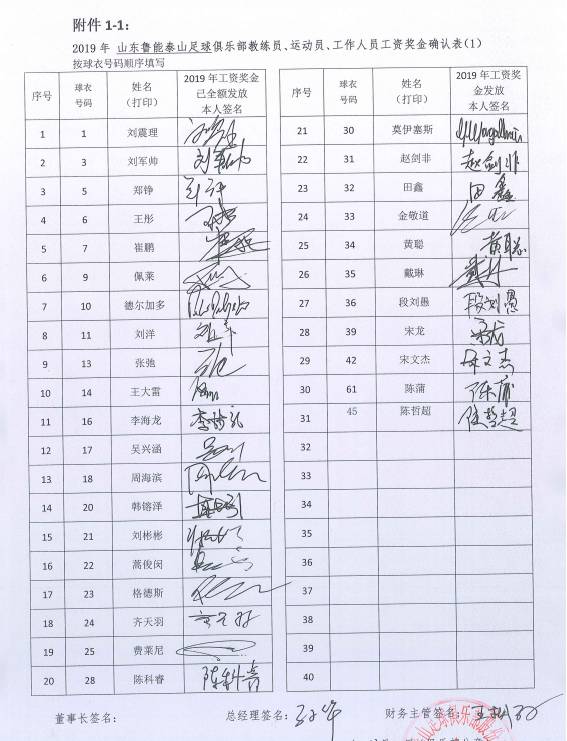 附件 1-1：
2019 年 山东鲁能泰山足球俱乐部教练员、运动员、工作人员工资奖金确认表(1)
按球衣号码顺序填写
序号 球衣号码 姓名（打印） 2019 年工资奖金已全额发放本人签名
1 1 刘震理
2 3 刘军帅 刘军帅
3 5 郑铮
4 6 王彤
5 7 崔鹏
6 9 佩莱
7 10 德尔加多
8 11 刘洋
9 13 张弛
10 14 王大雷
11 16 李海龙 李海龙
12 17 吴兴涵
13 18 周海滨
14 20 韩镕泽
15 21 刘彬彬
16 22 蒿俊闵
17 23 格德斯
18 24 齐天羽 齐天羽
19 25 费莱尼
20 28 陈科睿 陈科睿
序号 球衣号码 姓名（打印） 2019 年工资奖金发放本人签名
21 30 莫伊塞斯
22 31 赵剑非 赵剑非
23 32 田鑫 田鑫
24 33 金敬道
25 34 黄聪 黄聪
26 35 戴琳 戴琳
27 36 段刘愚 段刘愚
28 39 宋龙 宋龙
29 42 宋文杰 宋文杰
30 61 陈蒲 陈蒲
31 45 陈哲超 陈哲超
32
33
34
35
36
37
38
39
40
董事长签名： 总经理签名： 财务主管签名：